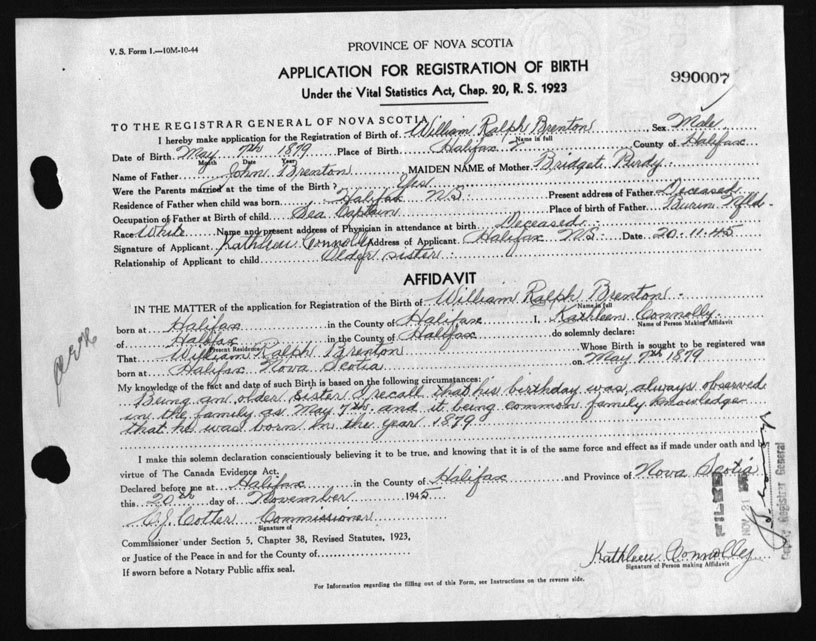 V. S. Form 1.—10M-10-44
PROVINCE OF NOVA SCOTIA
APPLICATION FOR REGISTRATION OF BIRTH
Under the Vital Statistics Act, Chap. 20, R. S. 1923
990007
TO THE REGISTRAR GENERAL OF NOVA SCOTIA
I hereby make application for the Registration of Birth of William Ralph Brenton Sex Male
Name in full
Date of Birth May 7th 1879 Place of Birth Halifax County of Halifax
Month Date Year
Name of Father John Brenton MAIDEN NAME of Mother Bridget Purdy
Were the Parents married at the time of the Birth? Yes
Residence of Father when child was born Halifax N.S. Present address of Father Deceased
Occupation of Father at Birth of child Sea Captain Place of birth of Father Burin Nfld.
Race White Name and present address of Physician in attendance at birth Deceased
Signature of Applicant Kathleen Connolly Address of Applicant Halifax N.S. Date 20-11-45
Relationship of Applicant to child Older sister
AFFIDAVIT
IN THE MATTER of the application for Registration of the Birth of William Ralph Brenton
Name in full
born at Halifax in the County of Halifax I, Kathleen Connolly
Name of Person Making Affidavit
of Halifax in the County of Halifax do solemnly declare:
Present Residence
That William Ralph Brenton Whose Birth is sought to be registered was
born at Halifax Nova Scotia on May 7th 1879
My knowledge of the fact and date of such Birth is based on the following circumstances:
Being an older sister I recall that his birthday was always observed
in the family as May 7th and it being common family knowledge
that he was born in the year 1879
I make this solemn declaration conscientiously believing it to be true, and knowing that it is of the same force and effect as if made under oath and by
virtue of The Canada Evidence Act.
Declared before me at Halifax in the County of Halifax and Province of Nova Scotia
this 20th day of November 1945
C.J. Cotter Commissioner
Signature of
Commissioner under Section 5, Chapter 38, Revised Statutes, 1923,
or Justice of the Peace in and for the County of
If sworn before a Notary Public affix seal.
Kathleen Connolly
Signature of Person making Affidavit
For Information regarding the filling out of this Form, see Instructions on the reverse side.
FILED
NOV 21
Registrar General